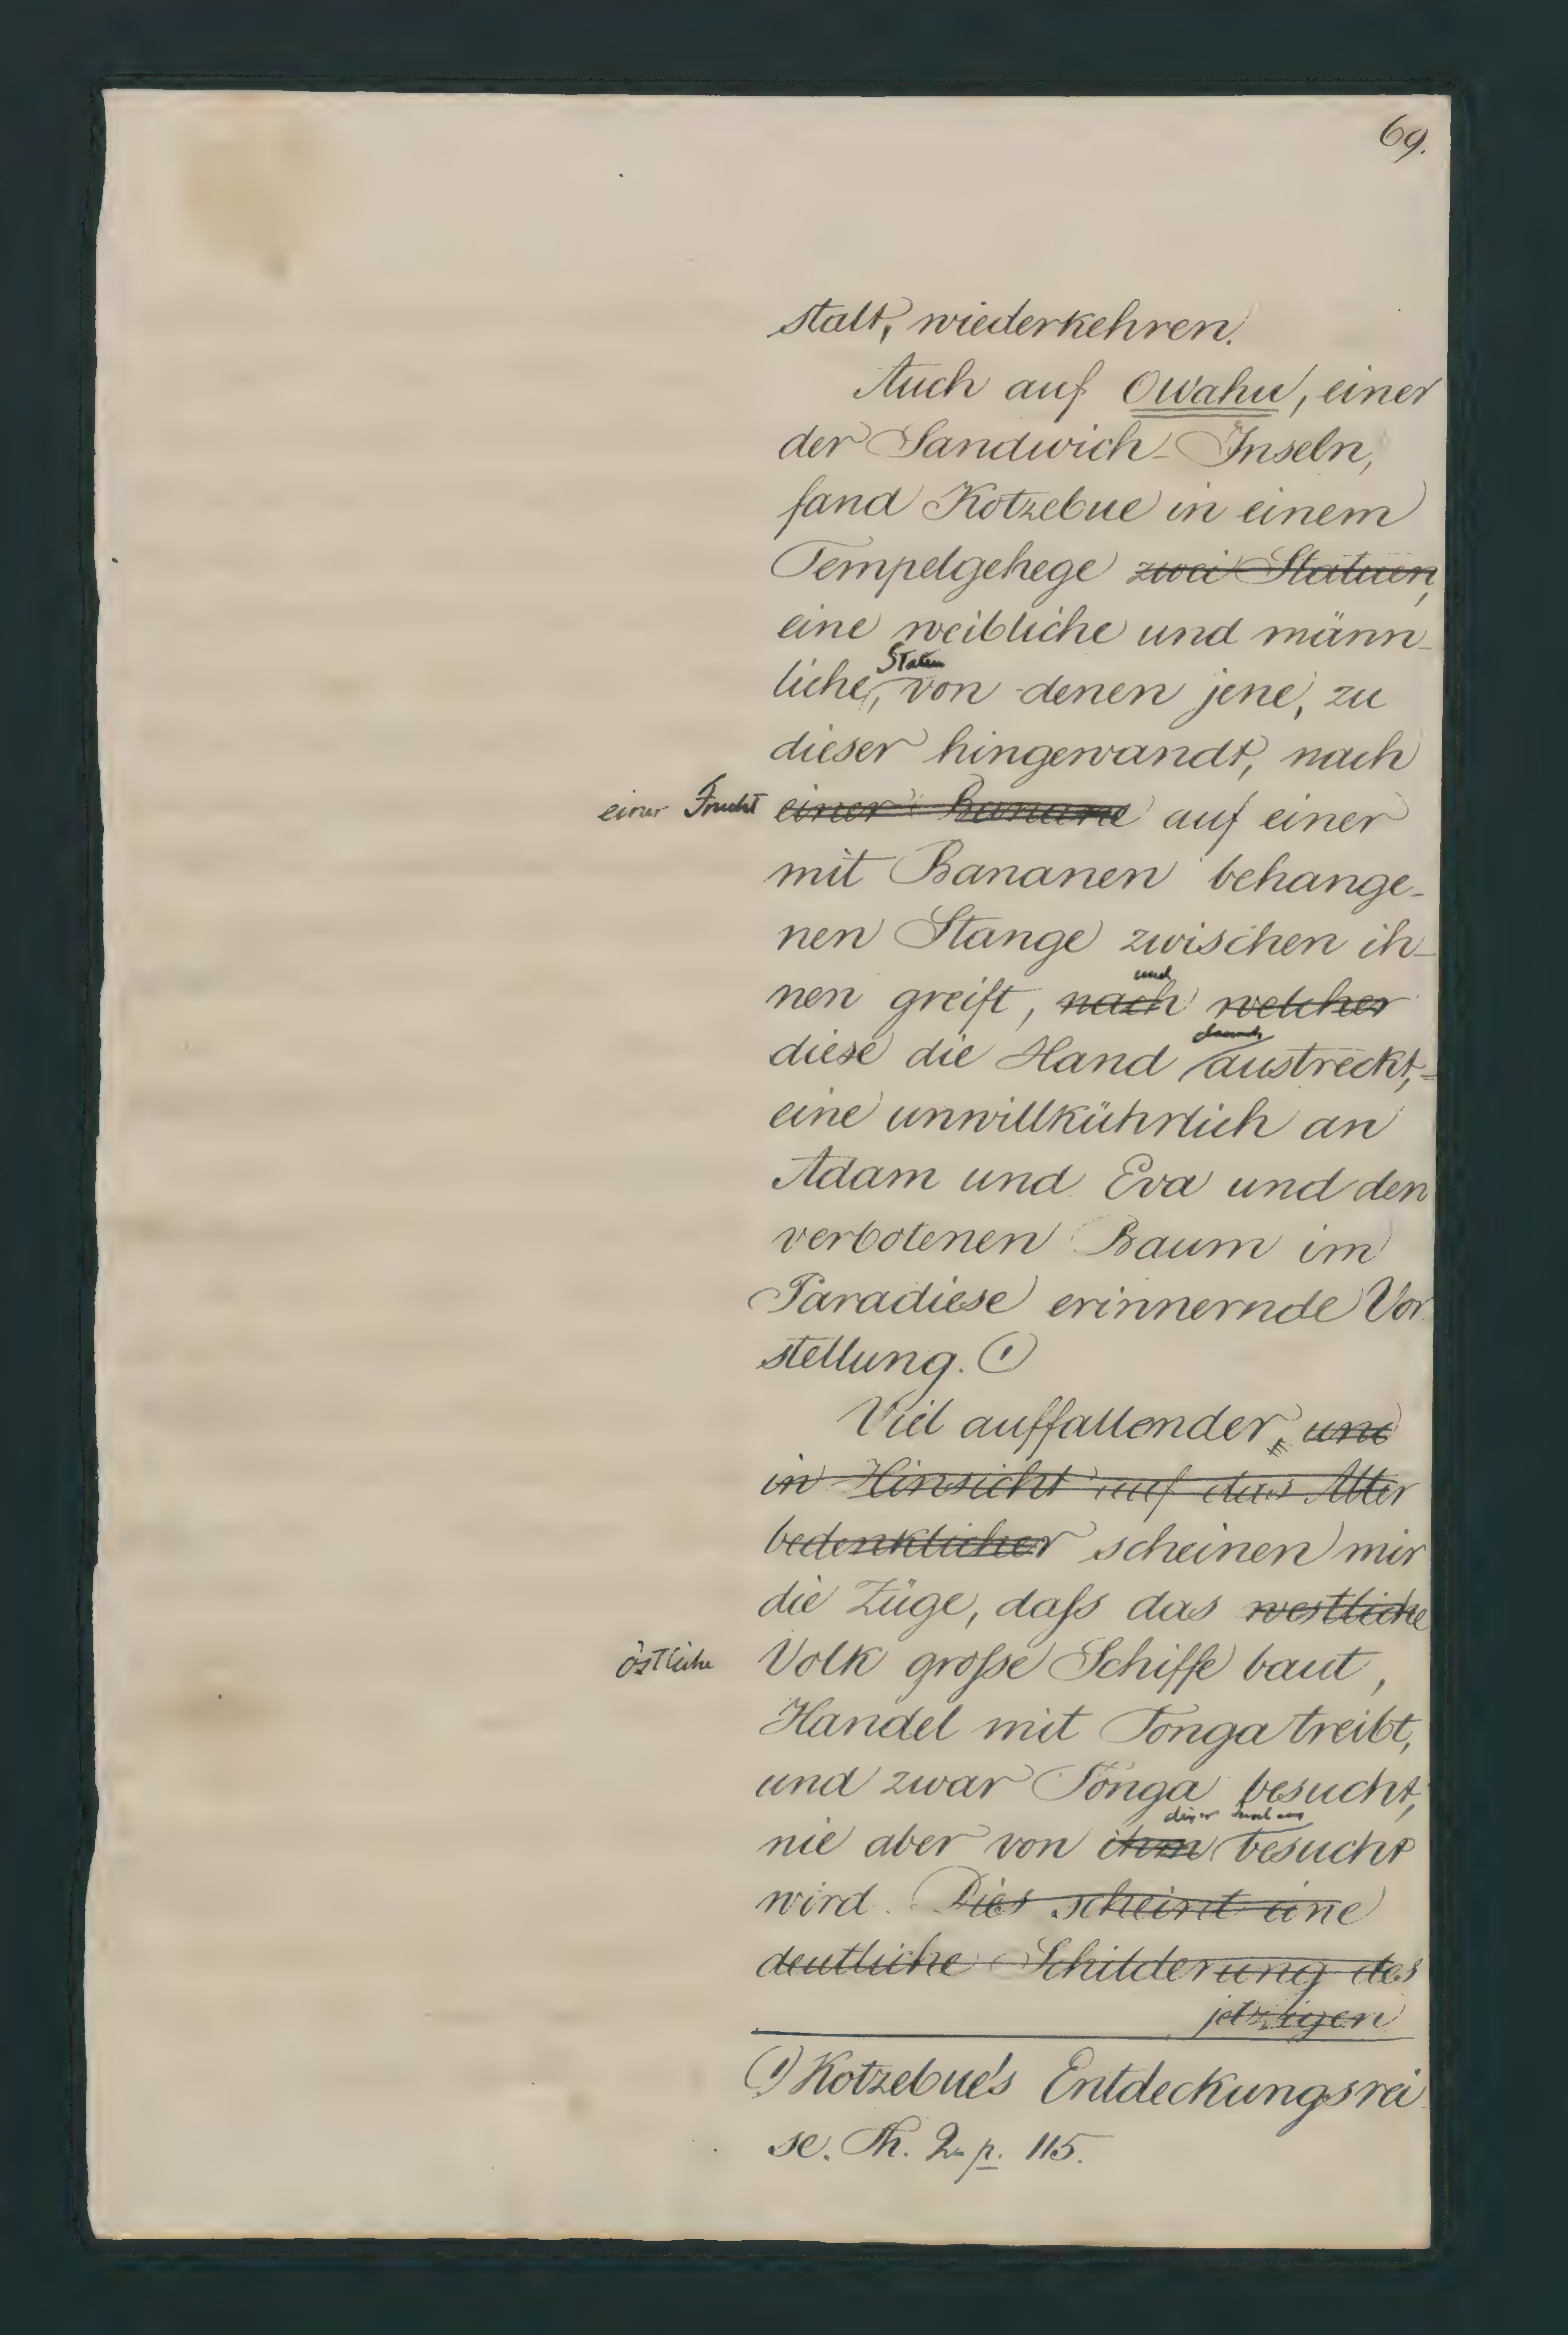 69.
stalt, wiederkehren.
Auch auf Owahu, einer
der Sandwich-Inseln,
fand Kotzebue in einem
Tempelgehege zwei Statuen,
eine weibliche und männ-
Statuen
liche, von denen jene, zu
dieser hingewandt, nach
einer Frucht einer Banane auf einer
mit Bananen behange-
nen Stange zwischen ih-
und
nen greift, nach welcher
danach
diese die Hand austreckt,-
eine unwillkührlich an
Adam und Eva und den
verbotenen Baum im
Paradiese erinnernde Vor
stellung. (1)
Viel auffallender, und
in Hinsicht auf das Alter
bedenklicher scheinen mir
die Züge, daſs das westliche
östliche Volk groſse Schiffe baut,
Handel mit Tonga treibt,
und zwar Tonga besucht,
dieser Insel aus
nie aber von ihm besucht
wird. Dies scheint eine
deutliche Schilderung des
jetzigen
(1) Kotzebue's Entdeckungsrei
se. Th. 2. p. 115.